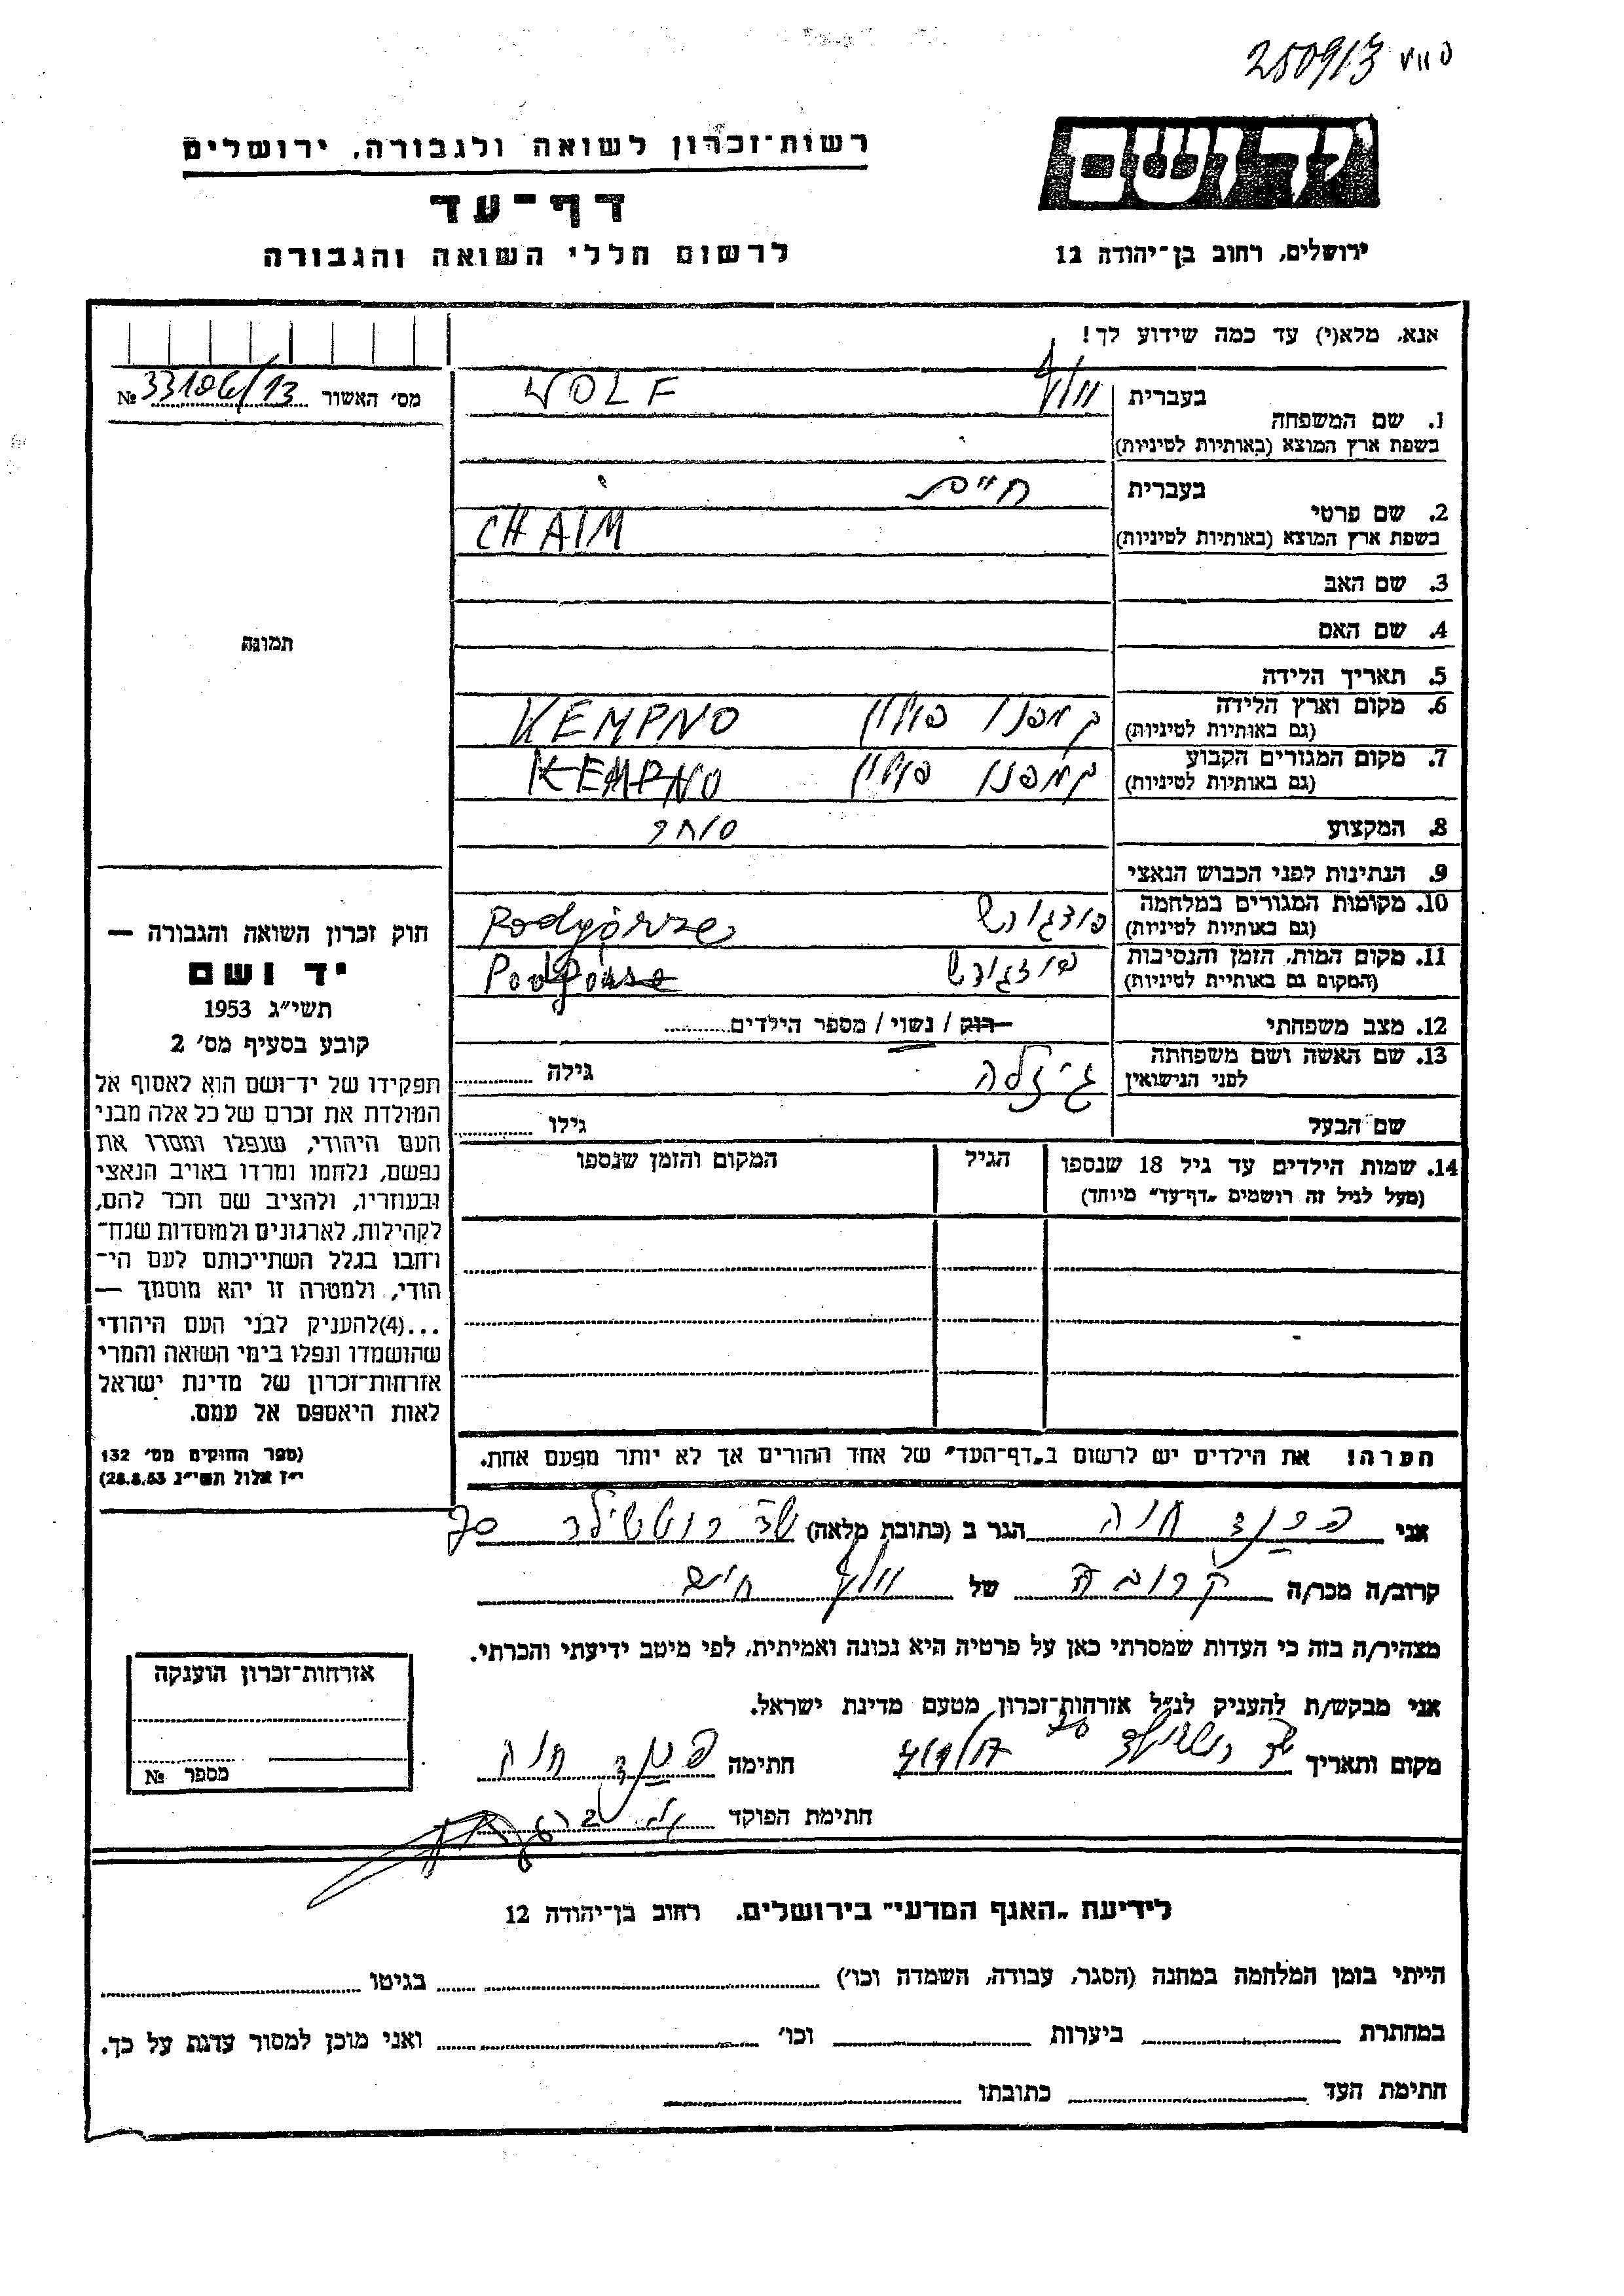 250913
רשות־זכרון לשואה ולגבורה, ירושלים
יד ושם
דף־עד
לרשום חללי השואה והגבורה
ירושלים, רחוב בן־יהודה 12
אנא, מלא(י) עד כמה שידוע לך!
מס׳ האשור № 33106/13
1. שם המשפחה
בעברית וולף WOLF
בשפת ארץ המוצא (באותיות לטיניות)
2. שם פרטי
בעברית חיים
בשפת ארץ המוצא (באותיות לטיניות) CHAIM
3. שם האב
4. שם האם
תמונה
5. תאריך הלידה
6. מקום וארץ הלידה (גם באותיות לטיניות) קמפנו פולין KEMPNO
7. מקום המגורים הקבוע (גם באותיות לטיניות) קמפנו פולין KEMPNO
8. המקצוע סוחר
9. הנתינות לפני הכבוש הנאצי
10. מקומות המגורים במלחמה (גם באותיות לטיניות) פודגורש Podgórze
11. מקום המות, הזמן והנסיבות (המקום גם באותיית לטיניות) פודגורש
12. מצב משפחתי רוק / נשוי / מספר הילדים
13. שם האשה ושם משפחתה לפני הנישואין גיזלה גילה
שם הבעל גילו
14. שמות הילדים עד גיל 18 שנספו
(מעל לגיל זה רושמים „דף־עד" מיוחד)
הגיל
המקום והזמן שנספו
חוק זכרון השואה והגבורה —
יד ושם
תשי״ג 1953
קובע בסעיף מס׳ 2
תפקידו של יד־ושם הוא לאסוף אל
המולדת את זכרם של כל אלה מבני
העם היהודי, שנפלו ומסרו את
נפשם, נלחמו ומרדו באויב הנאצי
ובעוזריו, ולהציב שם וזכר להם,
לקהילות, לארגונים ולמוסדות שנח־
רחבו בגלל השתייכותם לעם הי־
הודי, ולמטרה זו יהא מוסמך —
...(4)להעניק לבני העם היהודי
שהושמדו ונפלו בימי השואה והמרי
אזרחות־זכרון של מדינת ישראל
לאות היאספם אל עמם.
(ספר החוקים מס׳ 132
י״ז אלול תשי״ג 28.8.53)
הערה! את הילדים יש לרשום ב„דף־העד" של אחד ההורים אך לא יותר מפעם אחת.
אני חנה הגר ב (כתובת מלאה) שד רוטשילד 70
קרוב/ה מכר/ה קרובה של וולף חיים
מצהיר/ה בזה כי העדות שמסרתי כאן על פרטיה היא נכונה ואמיתית, לפי מיטב ידיעתי והכרתי.
אני מבקש/ת להעניק לנ״ל אזרחות־זכרון מטעם מדינת ישראל.
מקום ותאריך שד רוטשילד 70 חתימה חנה
חתימת הפוקד
אזרחות־זכרון הוענקה
מספר №
לידיעת „האגף המדעי" בירושלים, רחוב בן־יהודה 12
הייתי בזמן המלחמה במחנה (הסגר, עבודה, השמדה וכו׳) בגיטו
במחתרת ביערות וכו׳ ואני מוכן למסור עדות על כך.
חתימת העד כתובתו